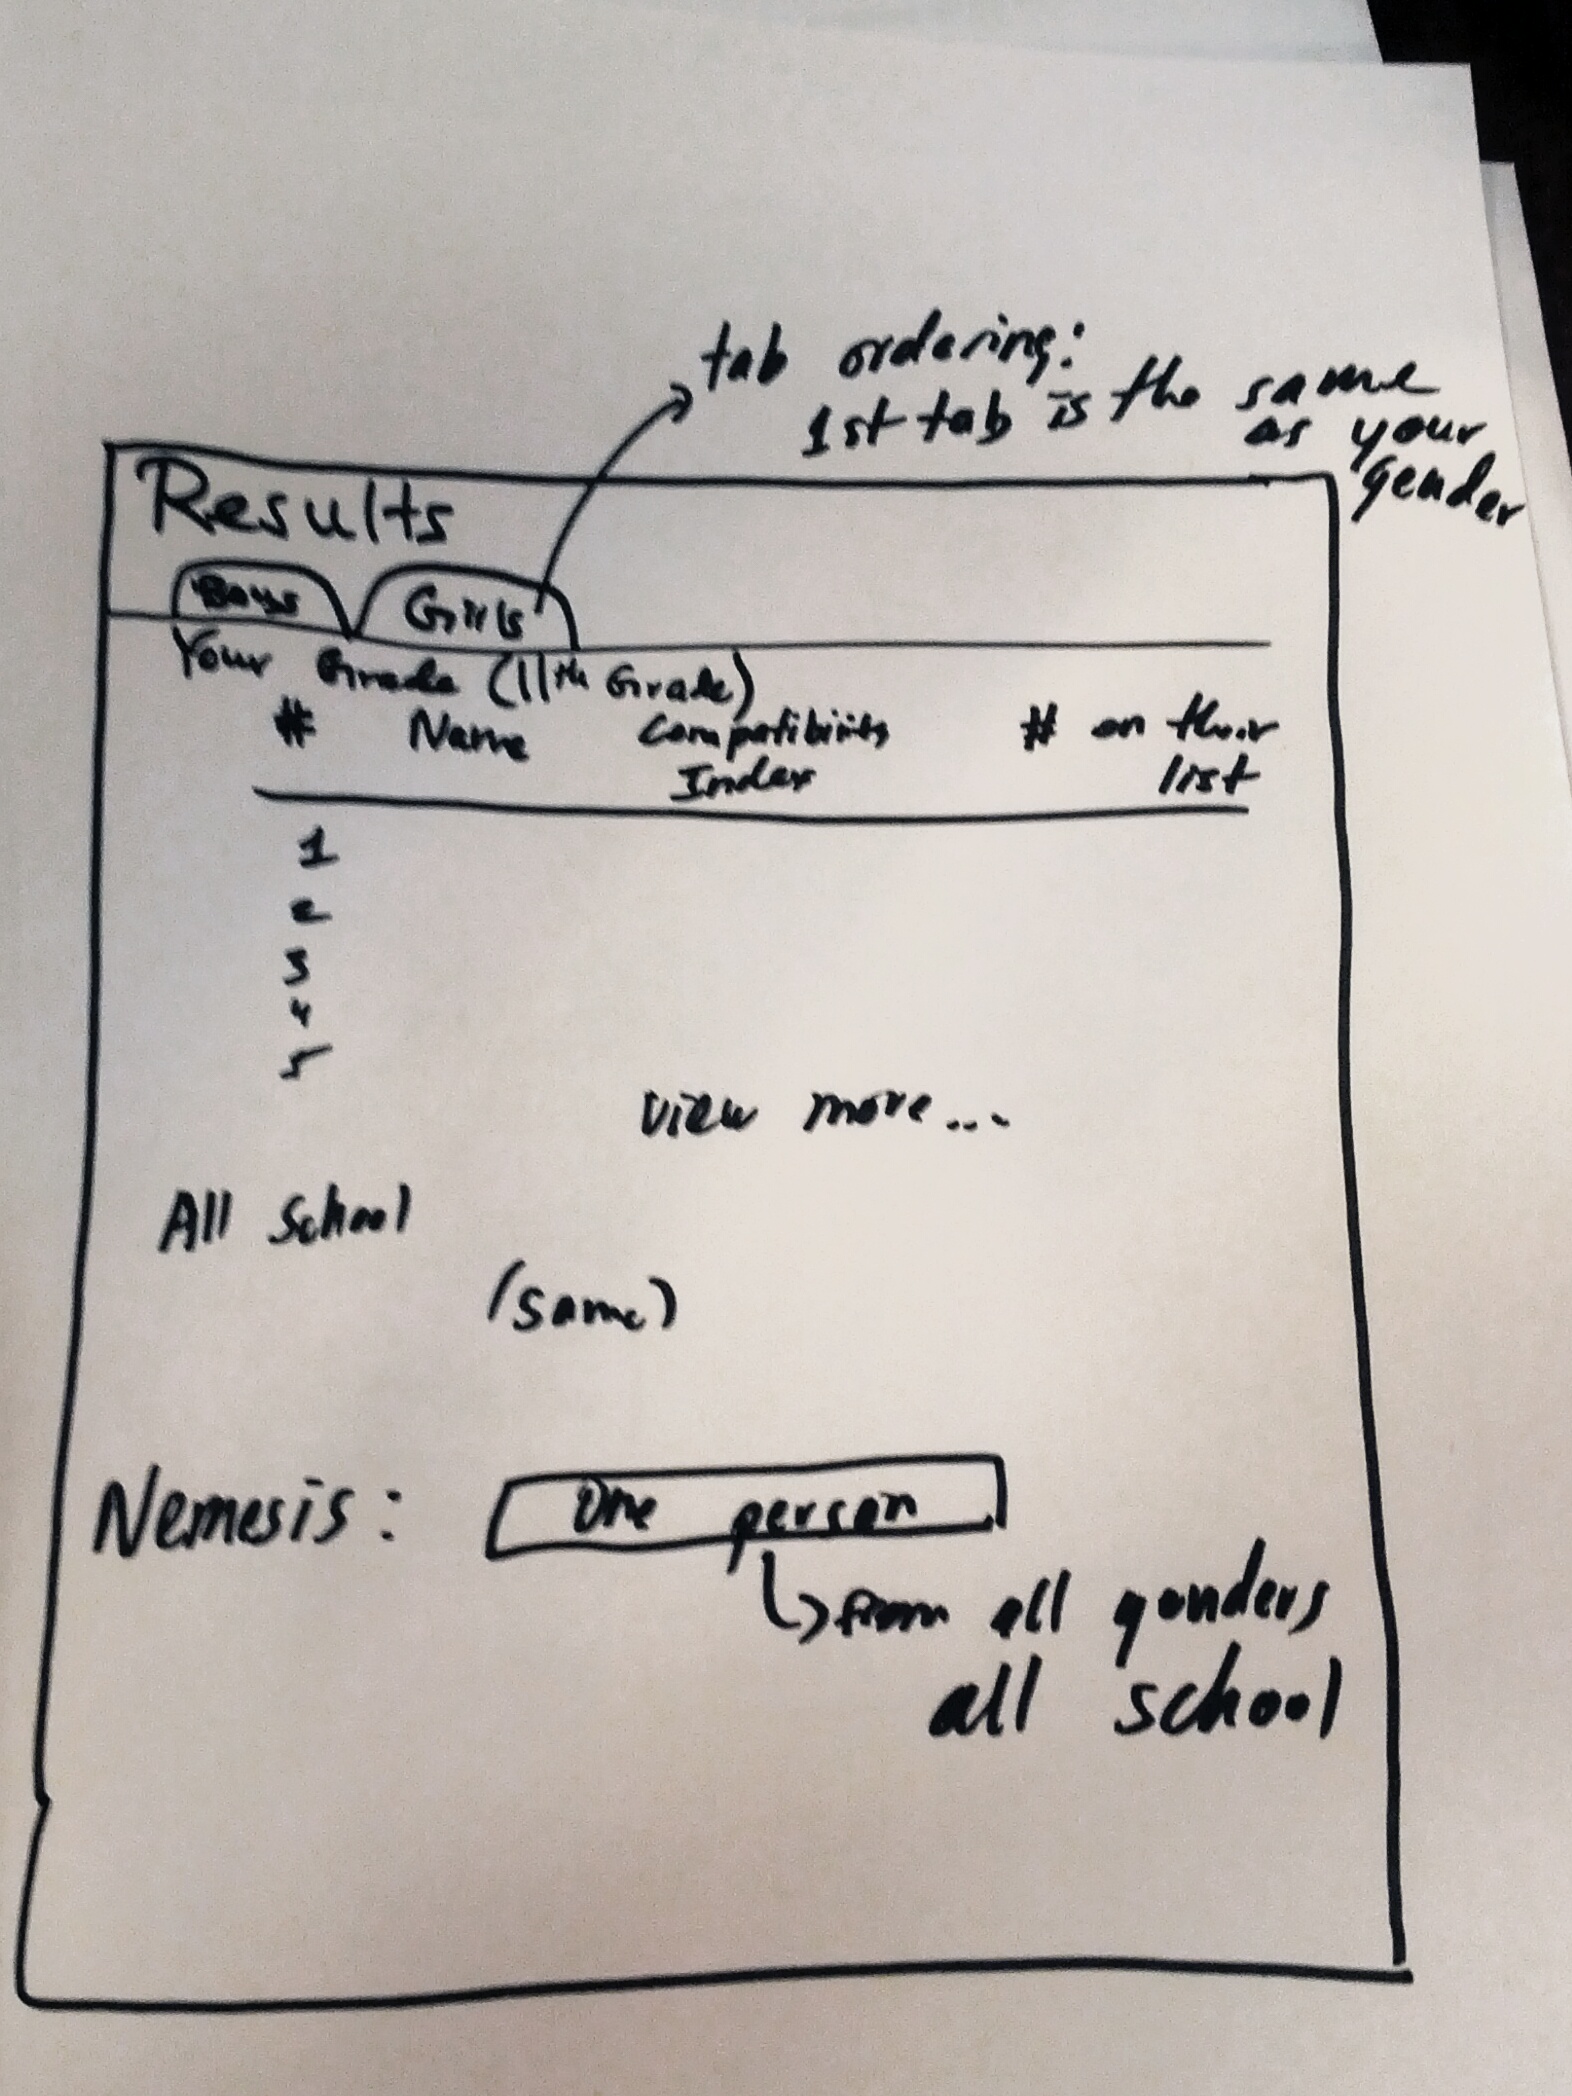 tab ordering:
1st tab is the same
as your
gender
Results
Boys Girls
Your Grade (11th Grade)
# Name Compatibility # on their
Index list
1
2
3
4
5
view more...
All School
(same)
Nemesis: One person
from all genders
all school